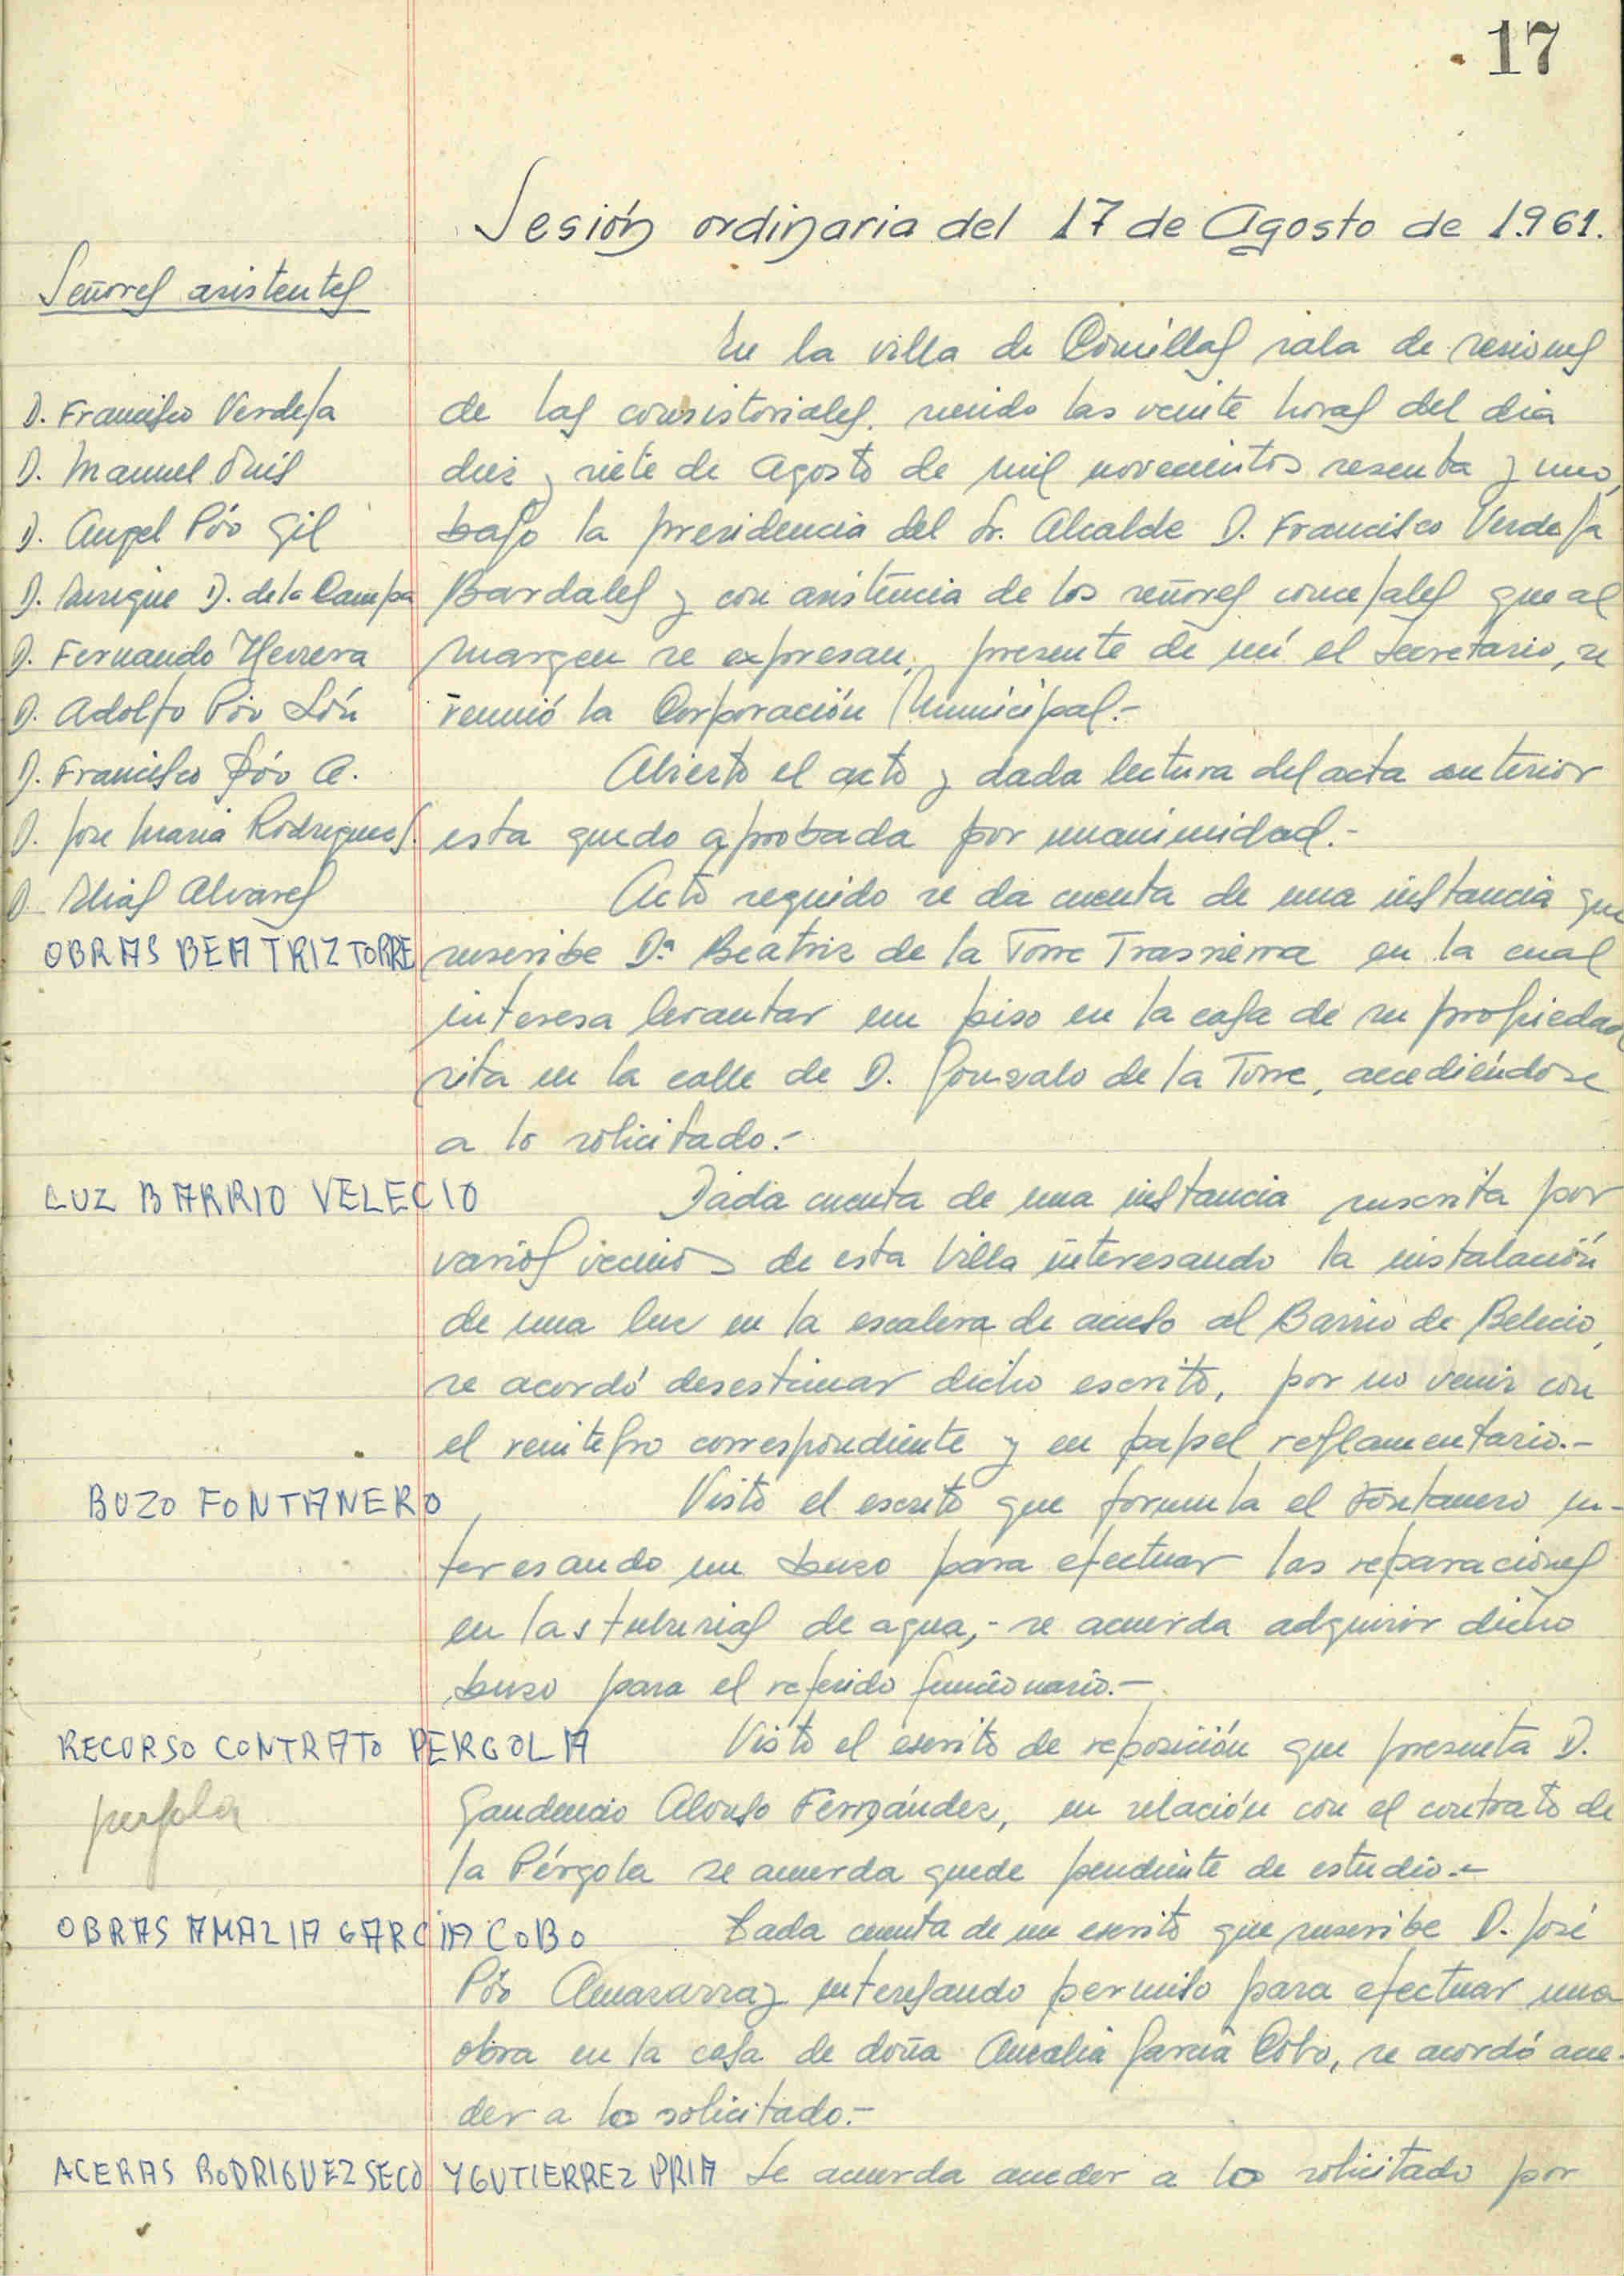 17
Sesión ordinaria del 17 de Agosto de 1.961.
Señores asistentes
D. Francisco Verdeja
D. Manuel
D. Angel Póo Gil
D. Enrique D. de la Campa
D. Fernando Herrera
D. Adolfo Póo
D. Francisco Póo A.
D. Jose Maria Rodriguez
D. Elias Alvarez
En la villa de Comillas sala de sesiones
de las consistoriales, siendo las veinte horas del dia
diez y siete de Agosto de mil novecientos sesenta y uno,
bajo la presidencia del Sr. Alcalde D. Francisco Verdeja
Bardales y con asistencia de los señores concejales que al
margen se expresan, presente de mí el Secretario, se
reunió la Corporación Municipal.-
Abierto el acto y dada lectura del acta anterior
esta quedo aprobada por unanimidad.-
Acto seguido se da cuenta de una instancia que
OBRAS BEATRIZ TORRE
suscribe Dª Beatriz de la Torre Trassierra en la cual
interesa levantar un piso en la casa de su propiedad
sita en la calle de D. Gonzalo de la Torre, accediéndose
a lo solicitado.-
LUZ BARRIO VELECIO
Dada cuenta de una instancia suscrita por
varios vecinos de esta Villa interesando la instalación
de una luz en la escalera de acceso al Barrio de Belecio,
se acordó desestimar dicho escrito, por no venir con
el reintegro correspondiente y en papel reglamentario.-
BUZO FONTANERO
Visto el escrito que formula el Fontanero in-
teresando un buzo para efectuar las reparaciones
en las tuberias de agua,- se acuerda adquirir dicho
buzo para el referido funcionario.-
RECURSO CONTRATO PERGOLA
pergola
Visto el escrito de reposición que presenta D.
Gaudencio Alonso Fernández, en relación con el contrato de
la Pérgola se acuerda quede pendiente de estudio.-
OBRAS AMALIA GARCIA COBO
Dada cuenta de un escrito que suscribe D. José
Póo Amazarray interesando permiso para efectuar una
obra en la casa de doña Amalia García Cobo, se acordó acce-
der a lo solicitado.-
ACERAS RODRIGUEZ SECO Y GUTIERREZ PRIA
Se acuerda acceder a lo solicitado por